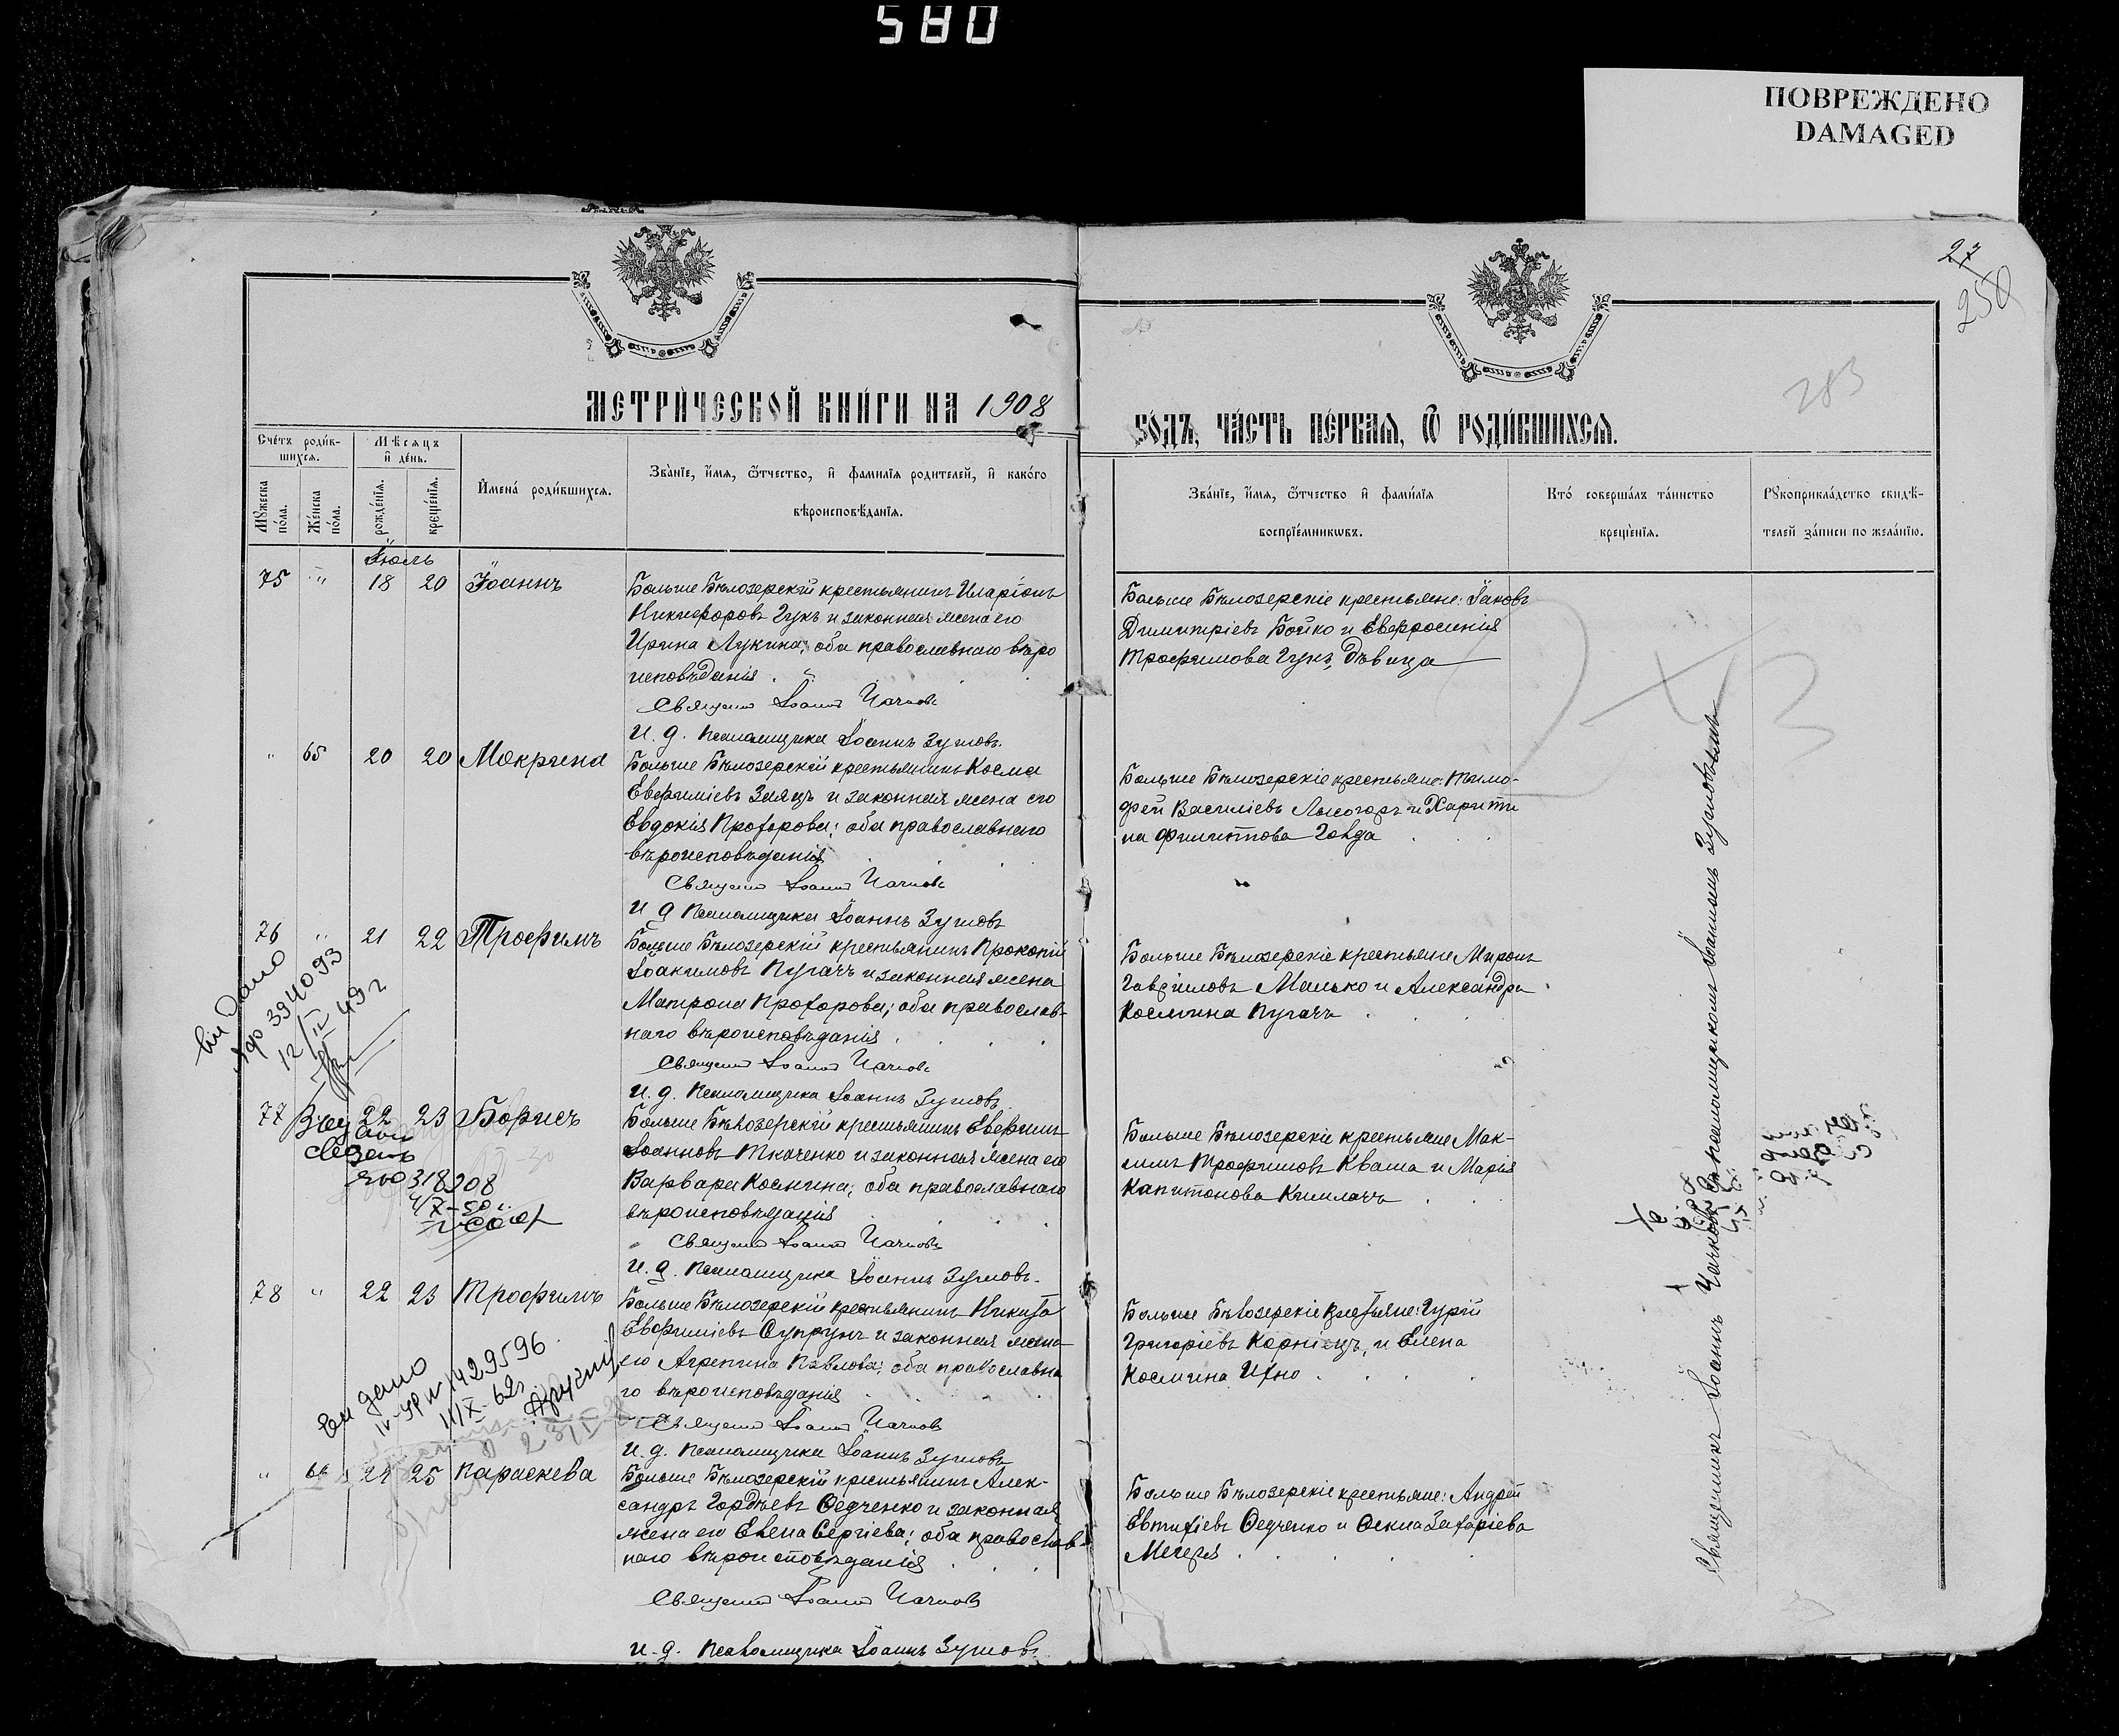 580
ПОВРЕЖДЕНО
DAMAGED
27
250
283
МЕТРИ́ЧЕСКОЙ КНИ́ГИ НА 1908
ГО́ДЪ, ЧА́СТЬ ПЕ́РВАЯ, Ѿ РОДИ́ВШИХСЯ.
Сче́тъ роди́в-
шихся.
Мѣсяцъ
и де́нь.
Мꙋжеска
по́ла.
Же́нска
по́ла.
рожде́нїѧ.
креще́нїѧ.
Имена́ роди́вшихсѧ.
Зва́нїе, и́мѧ, ѻ҆́тчество, и фами́лїѧ родителей, и како́го
вѣроисповѣ́данїѧ.
Зва́нїе, и́мѧ, ѻ҆́тчество и фами́лїѧ
воспрїе́мникѡвъ.
Кто́ соверша́лъ та́инство
креще́нїѧ.
Рꙋкоприкла́дство свидѣ́-
телей за́писи по жела́нїю.
Іюль
75 " 18 20 Іоаннъ
Больше Бѣлозерскій крестьянинъ Иларіонъ
Никифоровъ Гукъ и законная жена его
Ирина Лукина; оба православнаго вѣро
исповѣданія
Священ Іоаннъ Чачковъ
И. д. Псаломщика Іоаннъ Зуповъ.
Больше Бѣлозерскіе крестьяне: Іаковъ
Димитріевъ Бойко и Евфросинія
Трофимова Гукъ, дѣвица
" 65 20 20 Мокрина
Больше Бѣлозерскій крестьянинъ Косма
Евфиміевъ Заяцъ и законная жена его
Евдокія Прохорова; оба православнаго
вѣроисповѣданія
Священ Іоаннъ Чачковъ
И д Псаломщика Іоаннъ Зуповъ
Больше Бѣлозерскіе крестьяне: Тимо-
фей Василіевъ Лысогоръ и Харити
на Филиппова Говда
76 " 21 22 Трофимъ
Больше Бѣлозерскій крестьянинъ Прокопій
Іоакимовъ Пугачъ и законная жена
Матрона Прохорова; оба православ-
наго вѣроисповѣданія
Священ Іоаннъ Чачковъ
И. д. Псаломщика Іоаннъ Зуповъ
Больше Бѣлозерскіе крестьяне Миронъ
Гавріиловъ Малько и Александра
Космина Пугачъ
394093
12/IV 49 г
77 22 23 Борисъ
Больше Бѣлозерскій крестьянинъ Евфимъ
Іоанновъ Ткаченко и законная жена его
Варвара Космина; оба православнаго
вѣроисповѣданія
Священ Іоаннъ Чачковъ
И. д. Псаломщика Іоаннъ Зуповъ.
Больше Бѣлозерскіе крестьяне Мак-
симъ Трофимовъ Кваша и Марія
Капитонова Кишлачъ
318208
4/X-50 г.
78 " 22 23 Трофимъ
Больше Бѣлозерскій крестьянинъ Никита
Евфиміевъ Супрунъ и законная жена
его Агрепина Павлова; оба православна
го вѣроисповѣданія
Священ Іоаннъ Чачковъ
И. д. Псаломщика Іоаннъ Зуповъ
Больше Бѣлозерскіе крестьяне: Гурій
Григоріевъ Корніецъ, и Елена
Космина Ихно
дано
№ 1429596
11/X-62г
" 66 24 25 Параскева
Больше Бѣлозерскій крестьянинъ Алек-
сандръ Гордѣевъ Ѳедченко и законная
жена его Елена Сергіева; оба православ
наго вѣроисповѣданія
Священ Іоаннъ Чачковъ
И. д. Псаломщика Іоаннъ Зуповъ.
Больше Бѣлозерскіе крестьяне: Андрей
Евтихіевъ Ѳедченко и Ѳекла Захаріева
Мегеря
Священникъ Іоаннъ Чачковъ съ псаломщикомъ Іоанномъ Зуповымъ